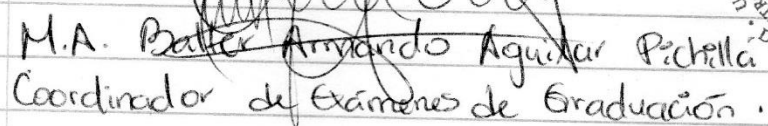 M.A. Balter Armando Aguilar Pichilla
Coordinador de Exámenes de Graduación.